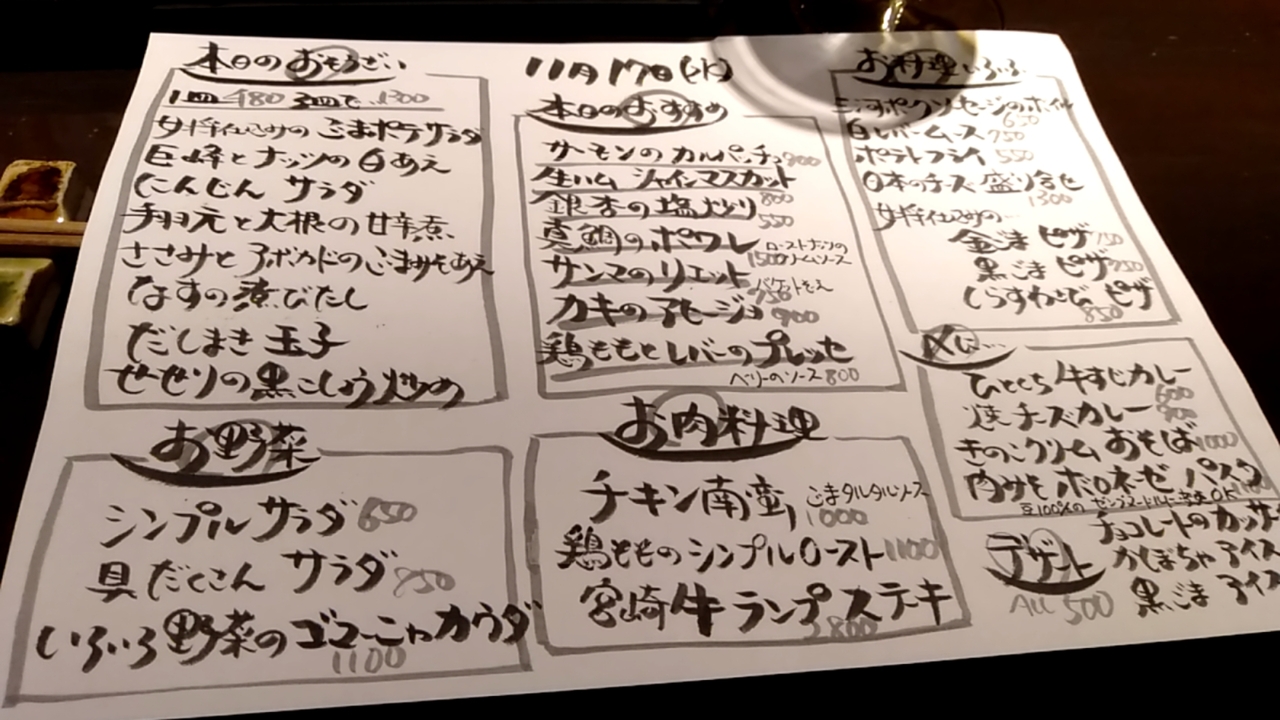 本日のおそうざい
1皿 480 3皿で 1300
女将仕込みの ごまポテサラダ
巨峰とナッツの白あえ
にんじん サラダ
手羽元と大根の甘辛煮
ささみとアボカドのごまみそあえ
なすの煮びたし
だしまき玉子
せせりの黒こしょう炒め
お野菜
シンプル サラダ 650
具だくさん サラダ 950
いろいろ野菜のゴマーニャカウダ
1100
11月17日(水)
本日のおすすめ
サーモンの カルパッチョ 900
生ハム シャインマスカット
800
銀杏の塩炒り
550
真鯛のポワレ ローストナッツの
1500 クリームソース
サンマのリエット バケットそえ
750
カキのアヒージョ 900
鶏ももとレバーのプレッセ
ベリーのソース 800
お肉料理
チキン南蛮 ごまタルタルソース
1000
鶏もものシンプルロースト 1100
宮崎牛 ランプ ステーキ
2800
お料理いろいろ
三河ポークソーセージのボイル
650
白レバームース 750
ポテトフライ 550
日本のチーズ 盛り合せ
1300
女将仕込みの
金ごま ピザ 750
黒ごま ピザ 750
しらすわさび ピザ
850
〆に…
ひとくち 牛すじカレー
600
焼チーズカレー 900
きのこクリーム おそば 1000
肉みそ ボロネーゼ パスタ
豆100%の ゼンブヌードルに変更OK 1100
デザート
All 500
チョコレートのカッサータ
かぼちゃアイス
黒ごま アイス